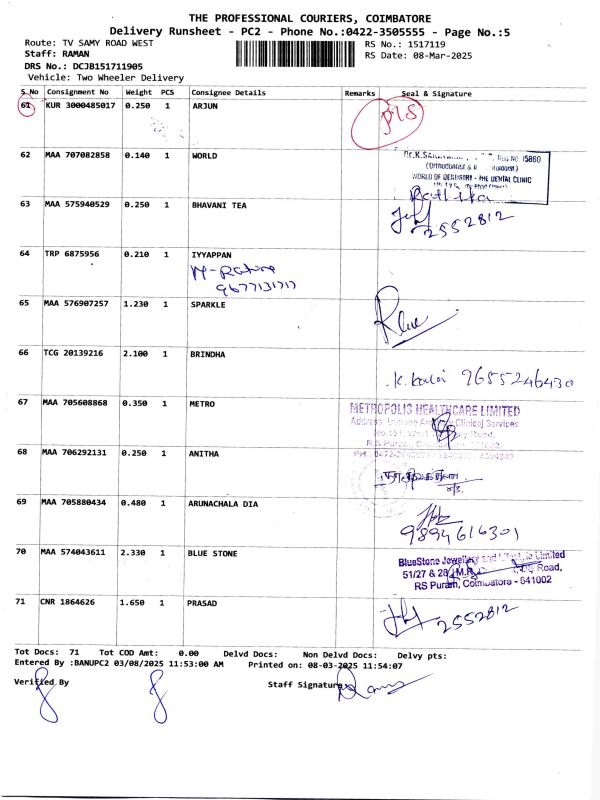 THE PROFESSIONAL COURIERS, COIMBATORE
Delivery Runsheet - PC2 - Phone No.:0422-3505555 - Page No.:5
Route: TV SAMY ROAD WEST
RS No.: 1517119
Staff: RAMAN
RS Date: 08-Mar-2025
DRS No.: DCJB151711905
Vehicle: Two Wheeler Delivery
S No Consignment No Weight PCS Consignee Details Remarks Seal & Signature
61 KUR 3000485017 0.250 1 ARJUN
62 MAA 707082858 0.140 1 WORLD
Reg No. 15860
WORLD OF DENTISTRY - THE DENTAL CLINIC
63 MAA 575940529 0.250 1 BHAVANI TEA
2552812
64 TRP 6875956 0.210 1 IYYAPPAN
9677131717
65 MAA 576907257 1.230 1 SPARKLE
66 TCG 20139216 2.100 1 BRINDHA
K. Kalai 9655246430
67 MAA 705608868 0.350 1 METRO
METROPOLIS HEALTHCARE LIMITED
Clinical Services
68 MAA 706292131 0.250 1 ANITHA
69 MAA 705880434 0.480 1 ARUNACHALA DIA
9894616301
70 MAA 574043611 2.330 1 BLUE STONE
BlueStone Jewellery and Limited
51/27 & 28 Road,
RS Puram, Coimbatore - 641002
71 CNR 1864626 1.650 1 PRASAD
2552812
Tot Docs: 71 Tot COD Amt: 0.00 Delvd Docs: Non Delvd Docs: Delvy pts:
Entered By :BANUPC2 03/08/2025 11:53:00 AM Printed on: 08-03-2025 11:54:07
Verified By Staff Signature